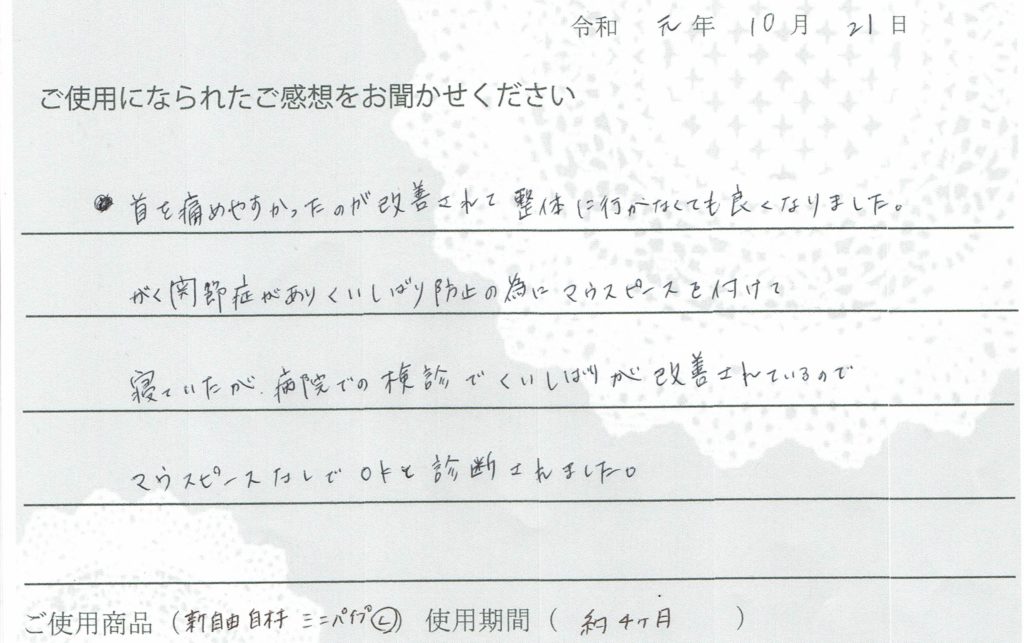 令和 元年 10月 21日
ご使用になられたご感想をお聞かせください
● 首を痛めやすかったのが改善されて整体に行かなくても良くなりました。
がく関節症がありくいしばり防止の為にマウスピースを付けて
寝ていたが、病院での検診でくいしばりが改善されているので
マウスピースなしでOKと診断されました。
ご使用商品(新自由自材 ミニパイプⓁ) 使用期間( 約4ヶ月 )